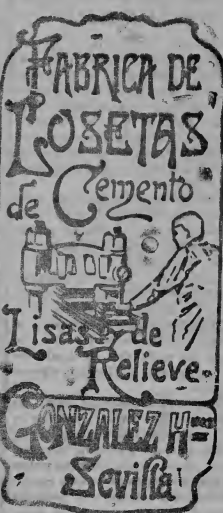 FABRICA DE
LOSETAS
de Cemento
Lisas y de
Relieve.
GONZALEZ
Sevilla